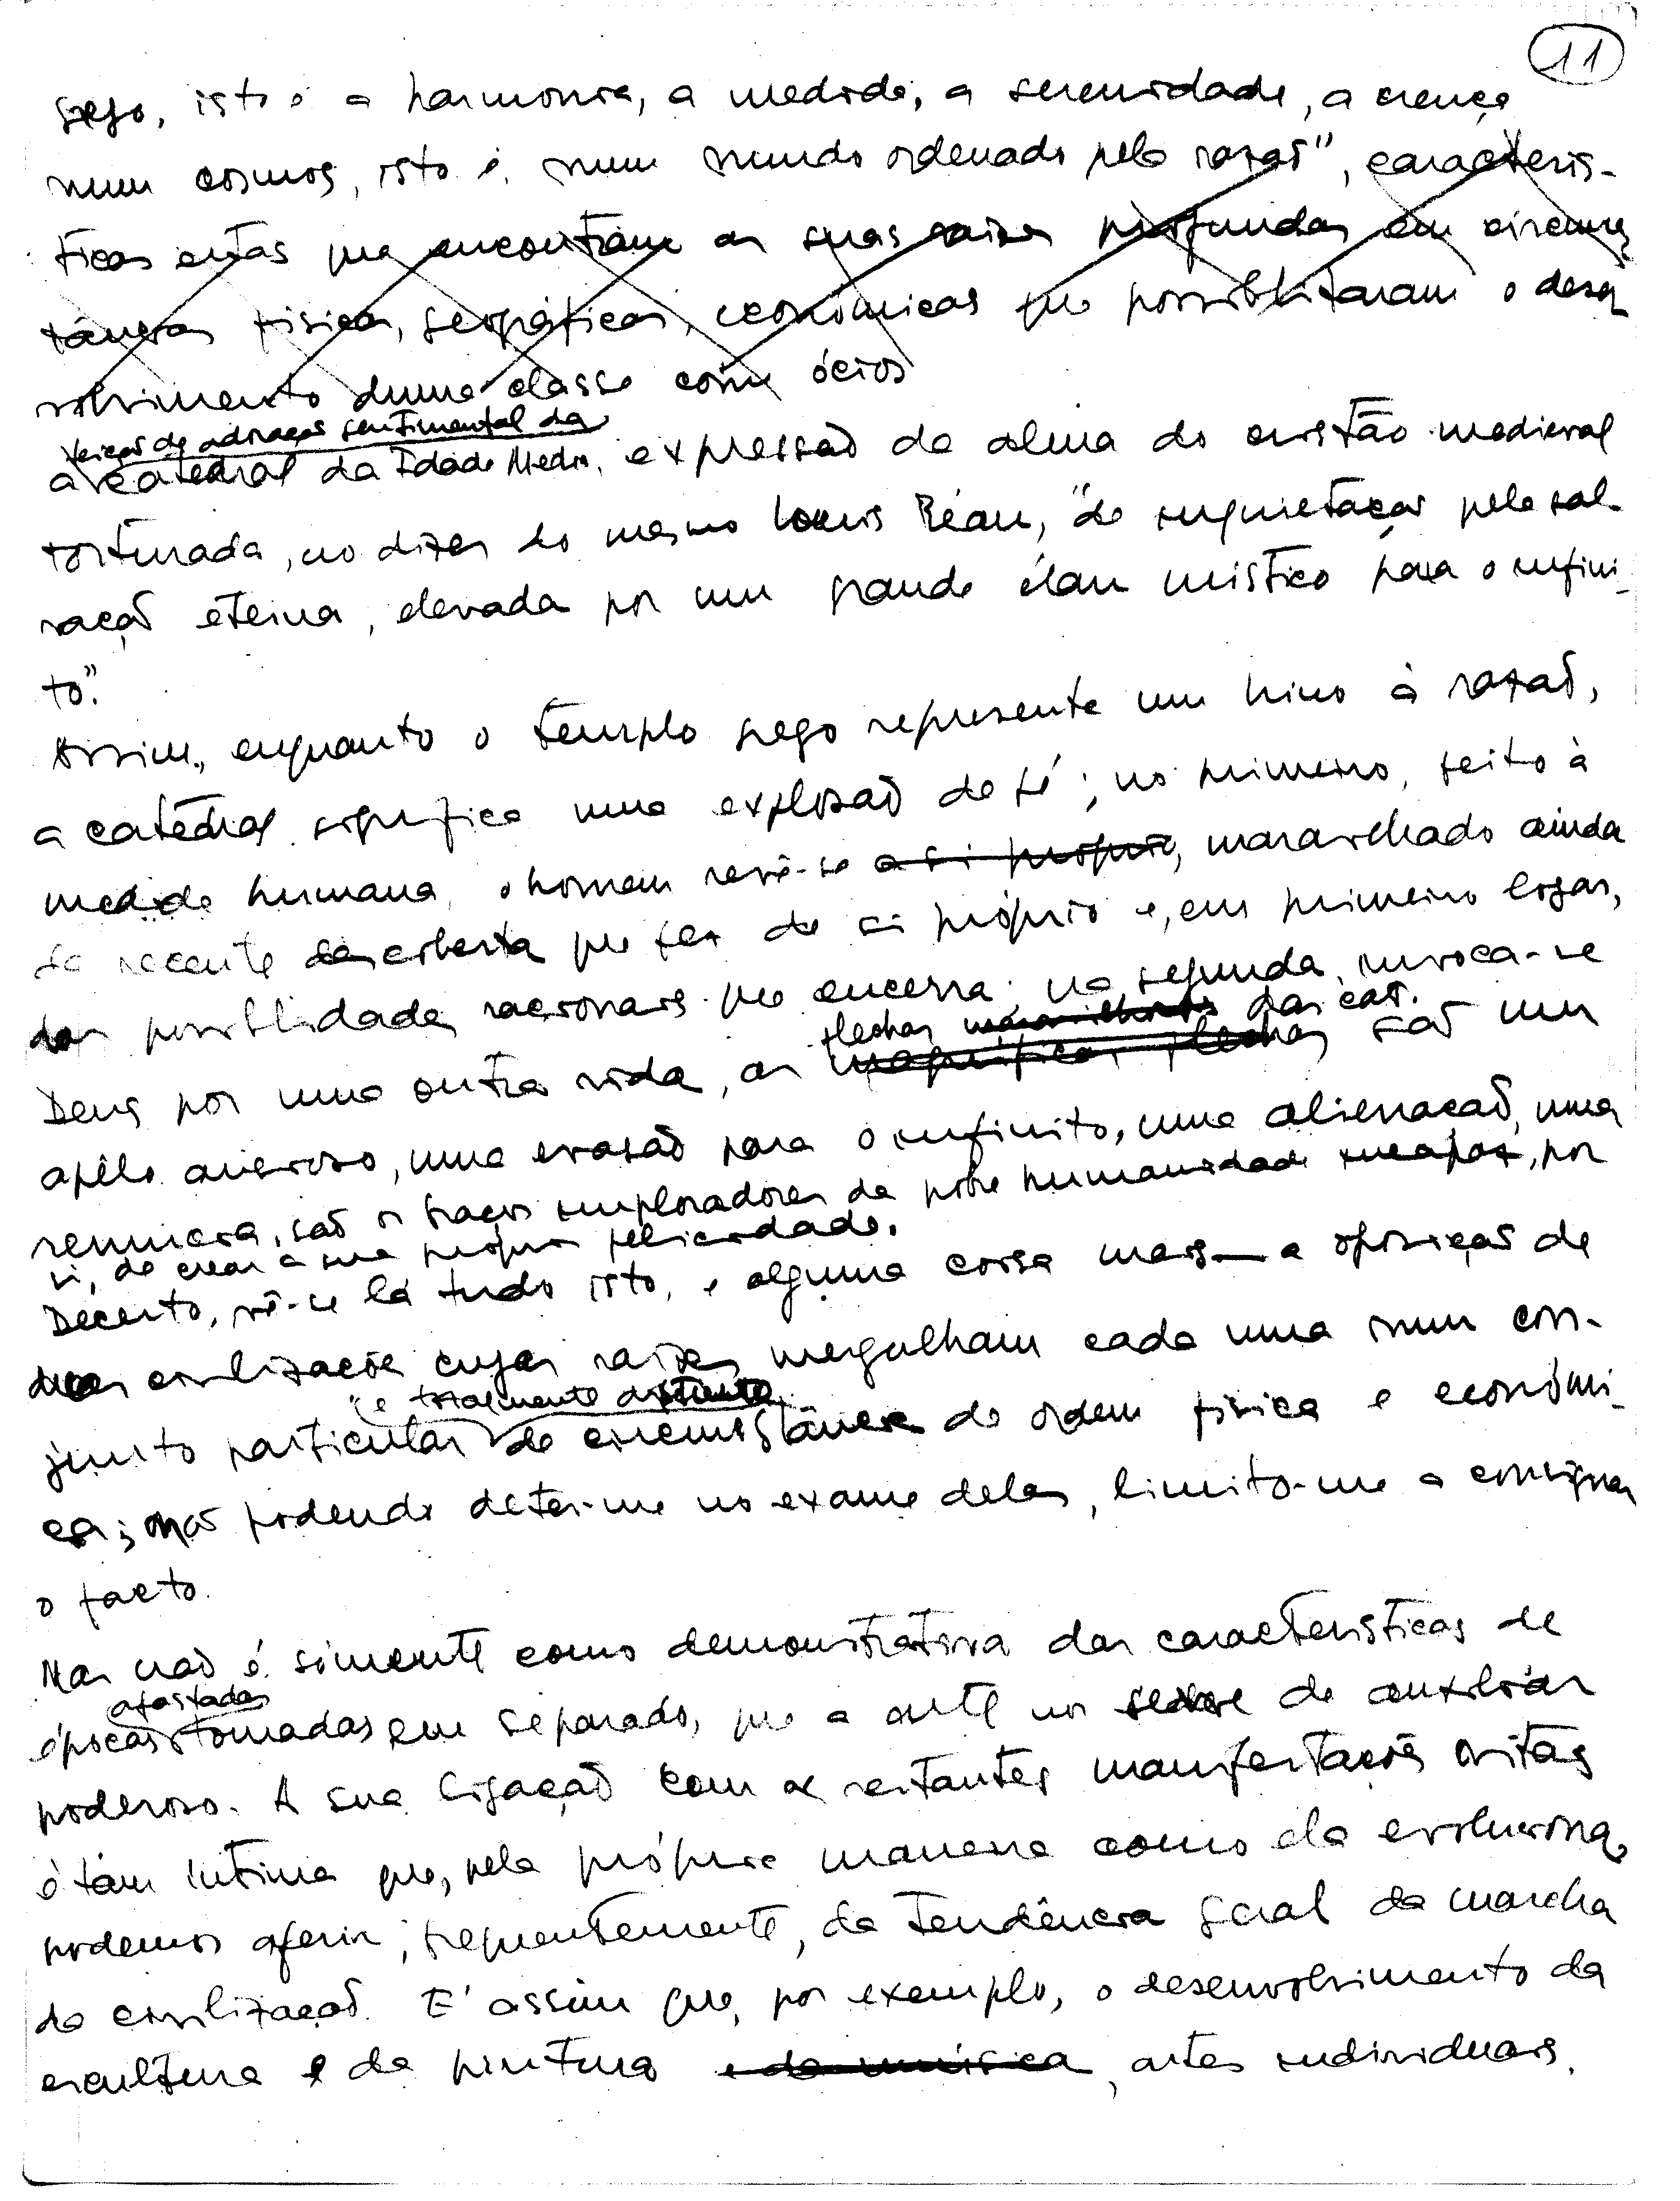 11
grego, isto é a harmonia, a medida, a serenidade, a crença
num cosmos, isto é, num mundo ordenado pela razão", caracterís-
ticas estas que encontram as suas raízes profundas em circuns
tâncias físicas, geográficas, económicas que possibilitaram o desen
volvimento duma classe com ócios
de adoração sentimental da
a catedral da Idade Média, expressão da alma do cristão medieval
torturada, no dizer do mesmo Louis Réau, "de inquietação pela sal-
vação eterna, elevada por um grande élan místico para o infini-
to".
Assim, enquanto o templo grego representa um hino à razão,
a catedral significa uma explosão de fé; no primeiro, feito à
medida humana, o homem revê-se a si próprio, maravilhado ainda
da recente descoberta que fez de si próprio e, em primeiro lugar,
das possibilidades racionais que encerra; na segunda, invoca-se
flechas maravilhosas das cat.
Deus por uma outra vida, as magníficas flechas são um
apêlo ansioso, uma evasão para o infinito, uma alienação, uma
renúncia, são os braços imploradores da pobre humanidade incapaz, por
si, de crear a sua própria felicidade.
Decerto, vê-se lá tudo isto, e alguma coisa mais — a oposição de
duas civilizações cujas raízes mergulham cada uma num con-
e totalmente distinto
junto particular de circunstâncias de ordem física e económi-
ca; não podendo deter-me no exame delas, limito-me a consignar
o facto.
Mas não é sómente como demonstrativa das características de
afastadas
épocas tomadas em separado, que a arte nos serve de auxiliar
poderoso. A sua ligação com as restantes manifestações vitais
é tam íntima que, pela própria maneira como ela evoluciona,
podemos aferir, frequentemente, da tendência geral da marcha
da civilização. E' assim que, por exemplo, o desenvolvimento da
escultura e da pintura e da música, artes individuais,